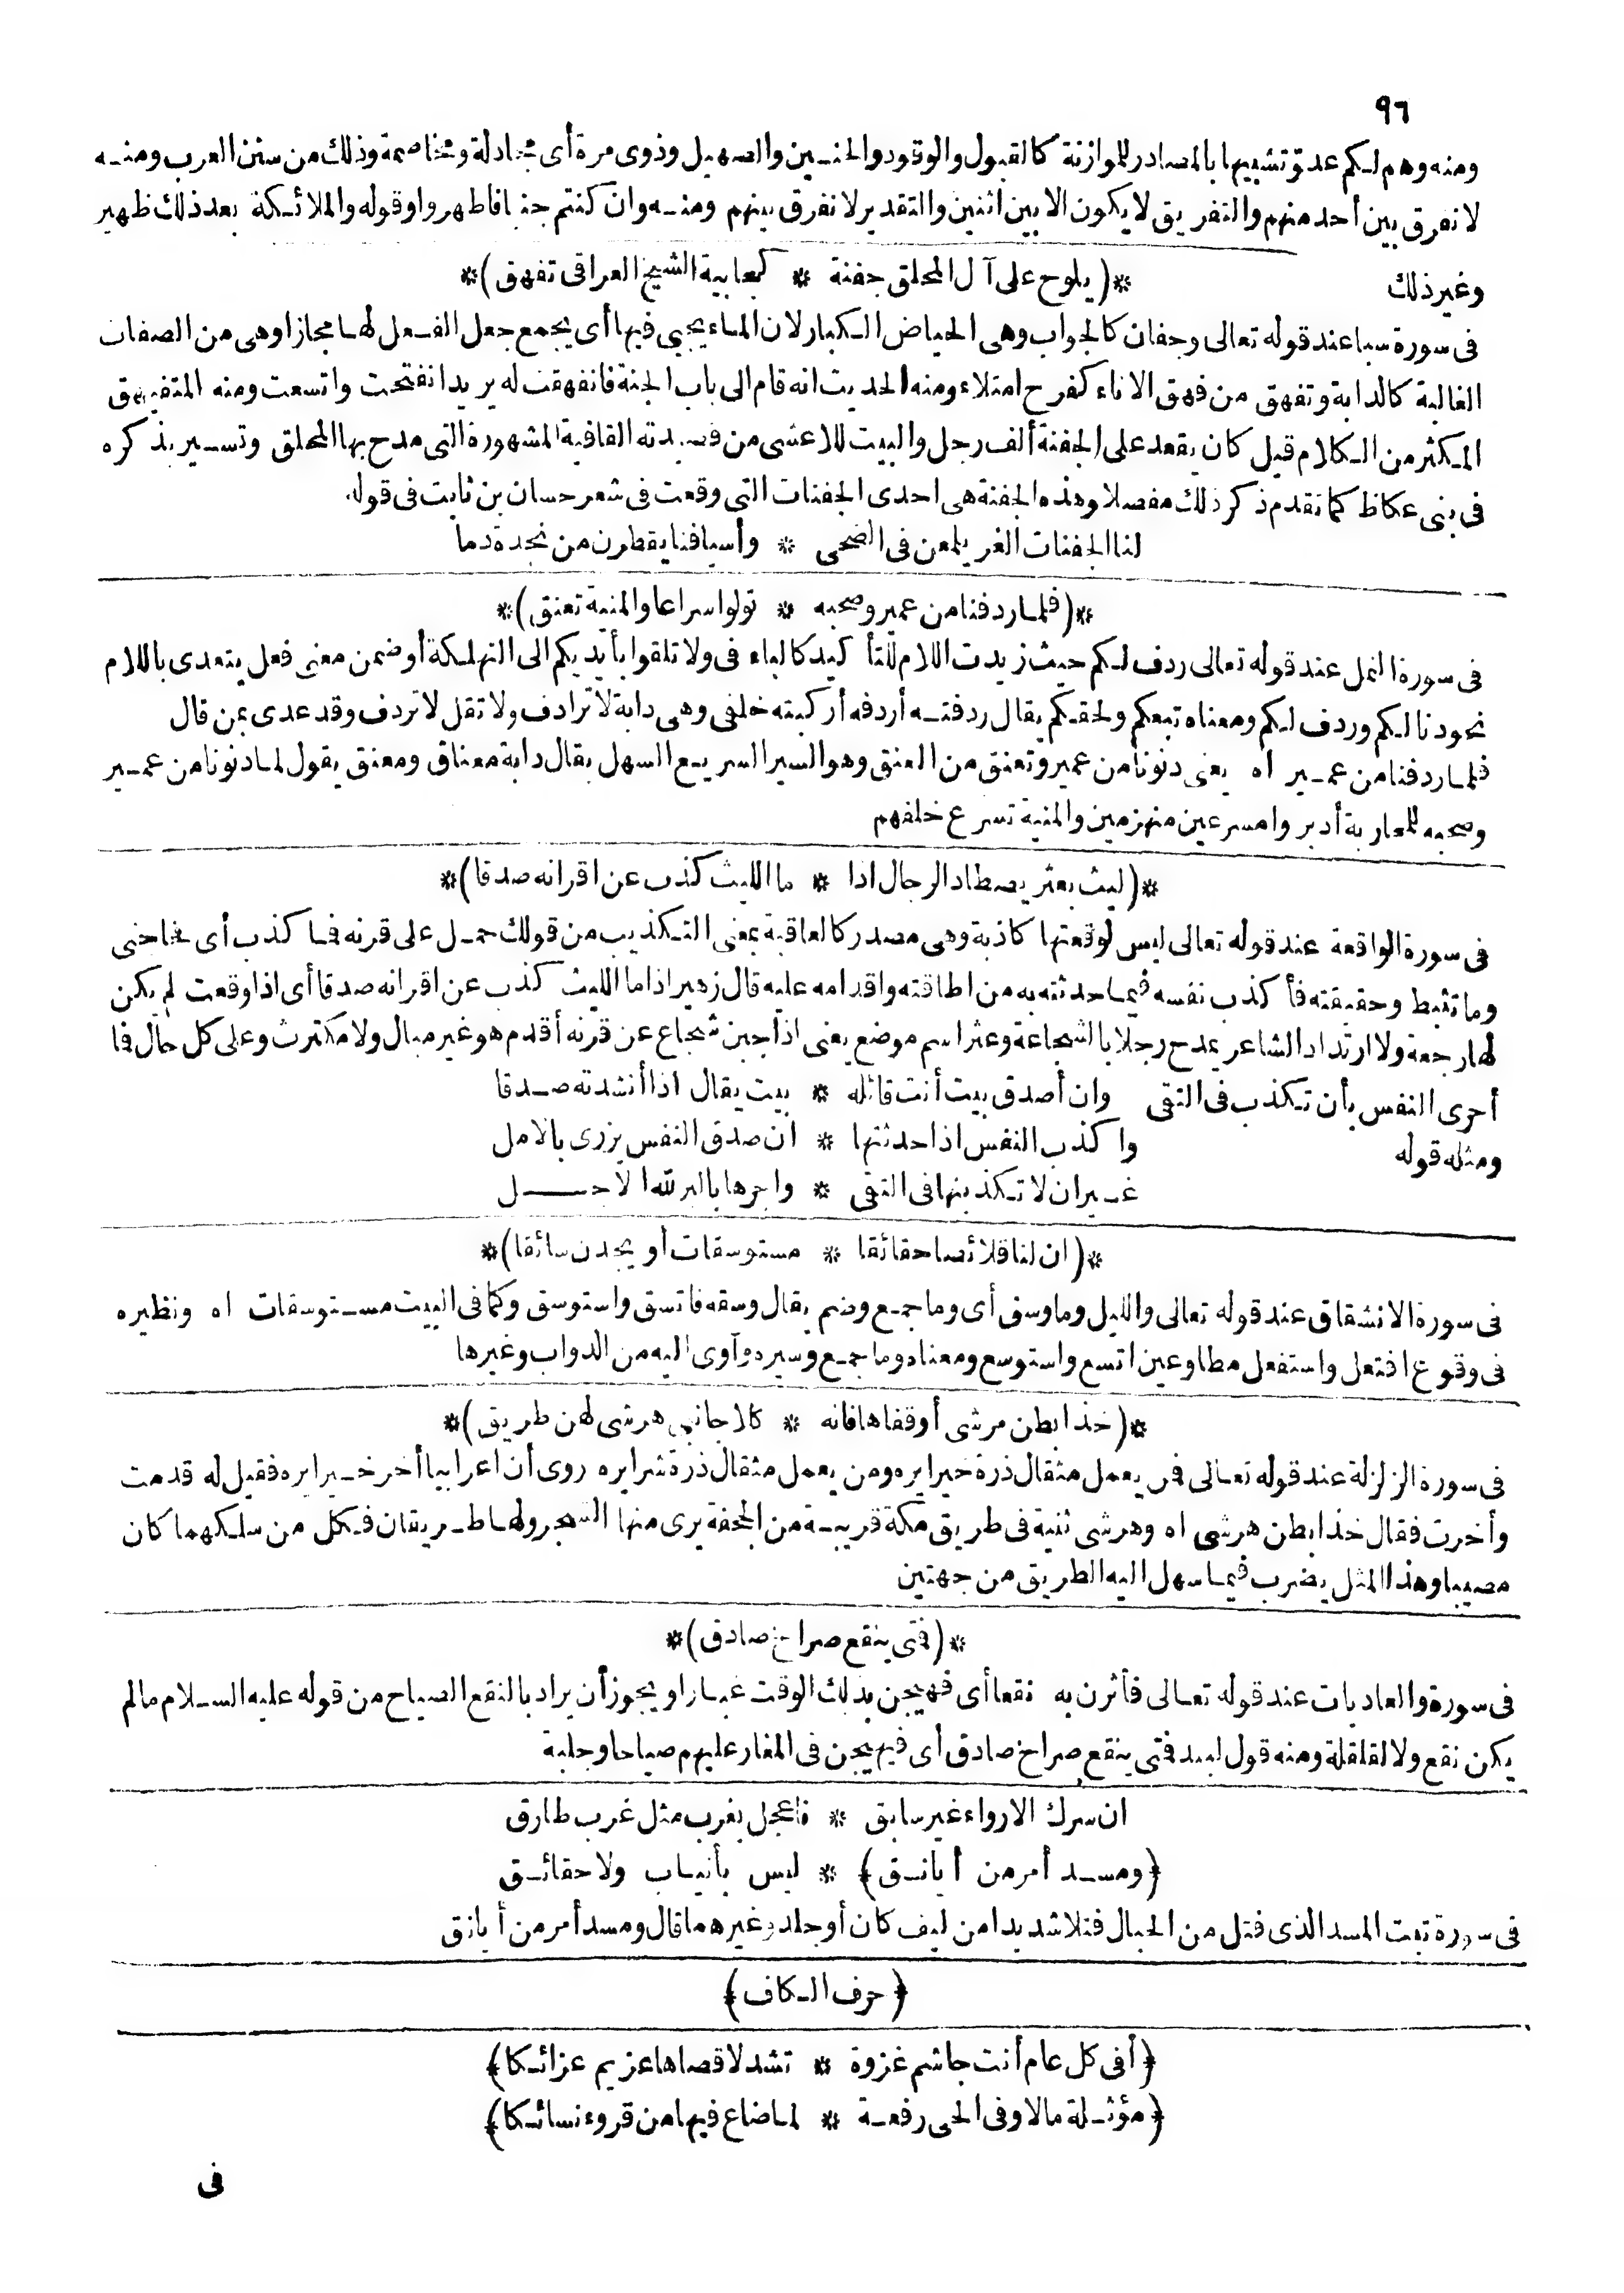 ٩٦
ومنه وهم لكم عدوّ تشبيها بالمصادر للموازنة كالقبول والوقود والحنين والصهيل وذوى مرة أى مجادلة ومخاصمة وذلك من سنن العرب ومنه
لا نفرق بين أحد منهم والتفريق لا يكون الا بين اثنين والتقدير لا نفرق بينهم ومنه وان كنتم جنبا فاطهروا وقوله والملائكة بعد ذلك ظهير
وغير ذلك *(يلوح على آل المحلق جفنة * كجابية الشيخ العراقى تفهق)*
فى سورة سبا عند قوله تعالى وجفان كالجواب وهى الحياض الكبار لان الماء يجبى فيها أى يجمع جعل الفعل لها مجازا وهى من الصفات
الغالبة كالدابة وتفهق من فهق الاناء كفرح امتلاء ومنه الحديث انه قام الى باب الجنة فانفهقت له يريد انفتحت واتسعت ومنه المتفيهق
المكثر من الكلام قيل كان يقعد على الجفنة ألف رجل والبيت للاعشى من قصيدته القافية المشهورة التى مدح بها المحلق وتسير بذكره
فى بنى عكاظ كما تقدم ذكر ذلك مفصلا وهذه الجفنة هى احدى الجفنات التى وقعت فى شعر حسان بن ثابت فى قوله
لنا الجفنات الغر يلمعن فى الضحى * وأسيافنا يقطرن من نجدة دما
*(فلما ردفنا من عمير وصحبه * تولوا سراعا والمنية تعنق)*
فى سورة النمل عند قوله تعالى ردف لكم حيث زيدت اللام للتأكيد كالباء فى ولا تلقوا بأيديكم الى التهلكة أو ضمن معنى فعل يتعدى باللام
نحو دنا لكم وردف لكم ومعناه تبعكم ولحقكم يقال ردفته أردفه أركبته خلفى وهى دابة لا ترادف ولا تقل لا تردف وقد عدى بمن قال
فلما ردفنا من عمير اه يعنى دنونا من عمير وتعنق من العنق وهو السير السريع السهل يقال دابة معناق ومعنق يقول لما دنونا من عمير
وصحبه للمحاربة أدبروا مسرعين منهزمين والمنية تسرع خلفهم
*(ليث بعثر يصطاد الرجال اذا * ما الليث كذب عن اقرانه صدقا)*
فى سورة الواقعة عند قوله تعالى ليس لوقعتها كاذبة وهى مصدر كالعاقبة بمعنى التكذيب من قولك حمل على قرنه فما كذب أى فما جبن
وما تثبط وحقيقته فأكذب نفسه فيما حدثته به من اطاقته واقدامه عليه قال زهير اذا ما الليث كذب عن اقرانه صدقا أى اذا وقعت لم يكن
لها رجعة ولا ارتداد الشاعر يمدح رجلا بالشجاعة وعثر اسم موضع يعنى اذا جبن شجاع عن قرنه أقدم هو غير مبال ولا مكترث وعلى كل حال فا
أحرى النفس بأن تكذب فى التقى وان أصدق بيت أنت قائله * بيت يقال اذا أنشدته صدقا
ومثله قوله واكذب النفس اذا حدثتها * ان صدق النفس يزرى بالامل
غير ان لا تكذبنها فى التقى * واجزها بالبر لله الاجل
*(ان لنا قلائصا حقائقا * مستوسقات أو يجدن سائقا)*
فى سورة الانشقاق عند قوله تعالى والليل وما وسق أى وما جمع وضم يقال وسقه فاتسق واستوسق وكما فى البيت مستوسقات اه ونظيره
فى وقوع افتعل واستفعل مطاوعين اتسع واستوسع ومعناه وما جمع وسيره وآوى اليه من الدواب وغيرها
*(خذا بطن هرشى أوقفاها فانه * كلا جانبى هرشى لهن طريق)*
فى سورة الزلزلة عند قوله تعالى فمن يعمل مثقال ذرة خيرا يره ومن يعمل مثقال ذرة شرا يره روى أن اعرابيا أخر خيرا يره فقيل له قدمت
وأخرت فقال خذا بطن هرشى اه وهرشى ثنية فى طريق مكة قريبة من الجحفة يرى منها البحر ولها طريقان فكل من سلكهما كان
مصيبا وهذا المثل يضرب فيما سهل اليه الطريق من جهتين
*(فمتى ينقع صراخ صادق)*
فى سورة والعاديات عند قوله تعالى فأثرن به نقعا أى فهيجن بذلك الوقت غبارا ويجوز أن يراد بالنقع الصياح من قوله عليه السلام ما لم
يكن نقع ولا لقلقلة ومنه قول لبيد فمتى ينقع صراخ صادق أى فيهيجن فى المغار عليهم صياحا وجلبة
ان سرك الارواء غير سابق * فاعجل بغرب مثل غرب طارق
{ومسد أمر من أيانق} * ليس بأنياب ولا حقائق
فى سورة تبت المسد الذى فتل من الحبال فتلا شديدا من ليف كان أو جلد وغيرهما قال ومسد أمر من أيانق
{حرف الكاف}
{أفى كل عام أنت جاشم غزوة * تشد لاقصاها عزيم عزائكا}
{مؤثلة مالا وفى الحى رفعة * لما ضاع فيها من قروء نسائكا}
فى